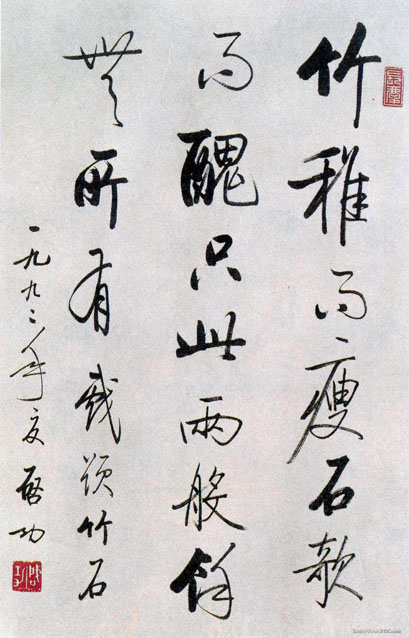 竹稚而瘦石款
而醜只此兩般餘
無所有戲題竹石
一九九二年夏啓功